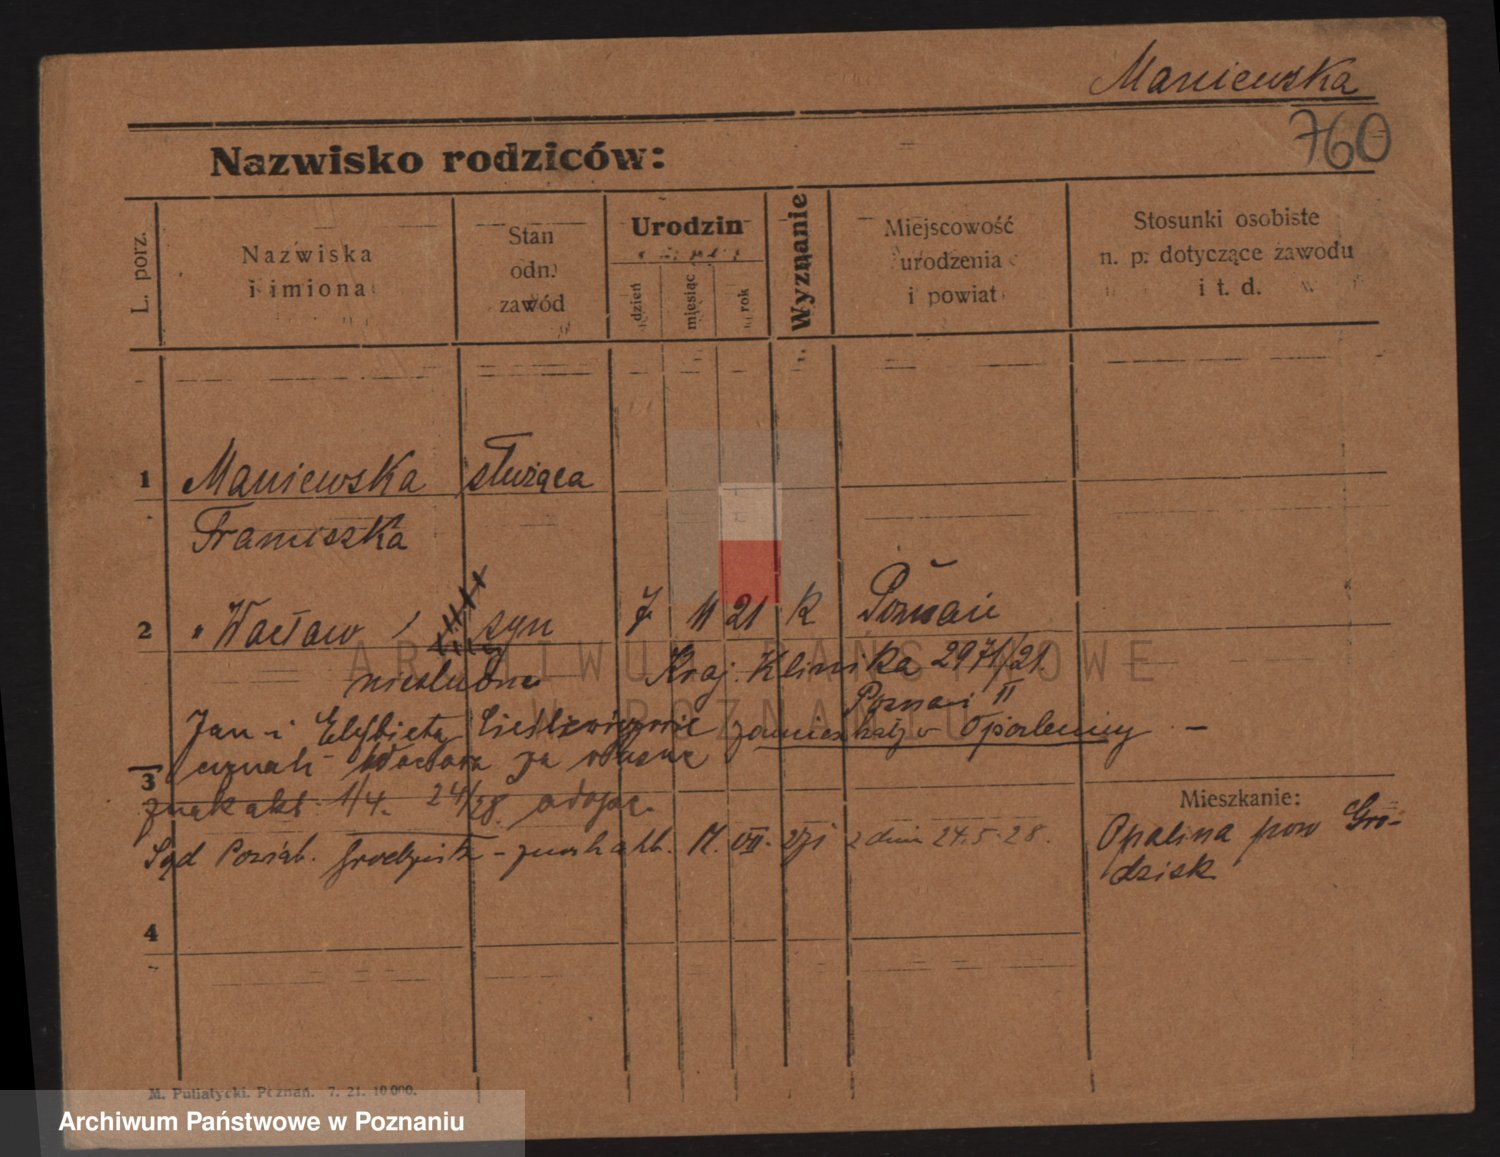 Maniewska
760
Nazwisko rodziców:
L. porz.
Nazwiska
i imiona
Stan
odn.
zawód
Urodzin
dzień
miesiąc
rok
Wyznanie
Miejscowość
urodzenia
i powiat
Stosunki osobiste
n. p. dotyczące zawodu
i t. d.
1 Maniewska służąca
Franciszka
2 " Wacław syn 7 11 21 k Poznań
nieślubne Kraj. Klinika 2971/21.
Poznań II
Jan i Elżbieta zamieszkały w Opalenicy —
uznali Wacława za własne
3 znak akt. 1/4. 24/28.
Mieszkanie:
Sąd Powiat. Grodzisk - znak akt. VII. z dnia 24.5.28.
Opalina pow Gro-
dzisk
4
M. Putiatycki. Poznań. 7. 21. 10 000.
ARCHIWUM PAŃSTWOWE
W POZNANIU
Archiwum Państwowe w Poznaniu